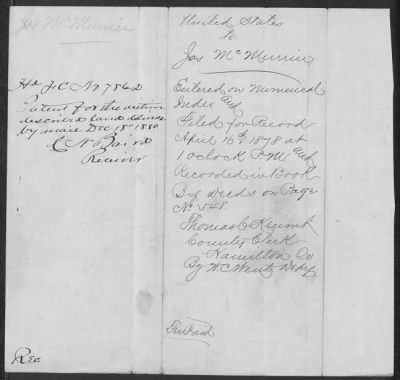 Jas McMurrin
Hd FC No 7862
Patent for the within
described land delivered
by mail Dec 18th 1880
C N Baird
Receiver
Rec
United States
to
Jas McMurrin
Entered on Numerical
Index and
Filed for Record
April 16th 1878 at
1 oclock P M and
Recorded in Book
Deeds on Page
No 548
Thomas C
County Clerk
Hamilton Co
By W. C. Wentz Depy